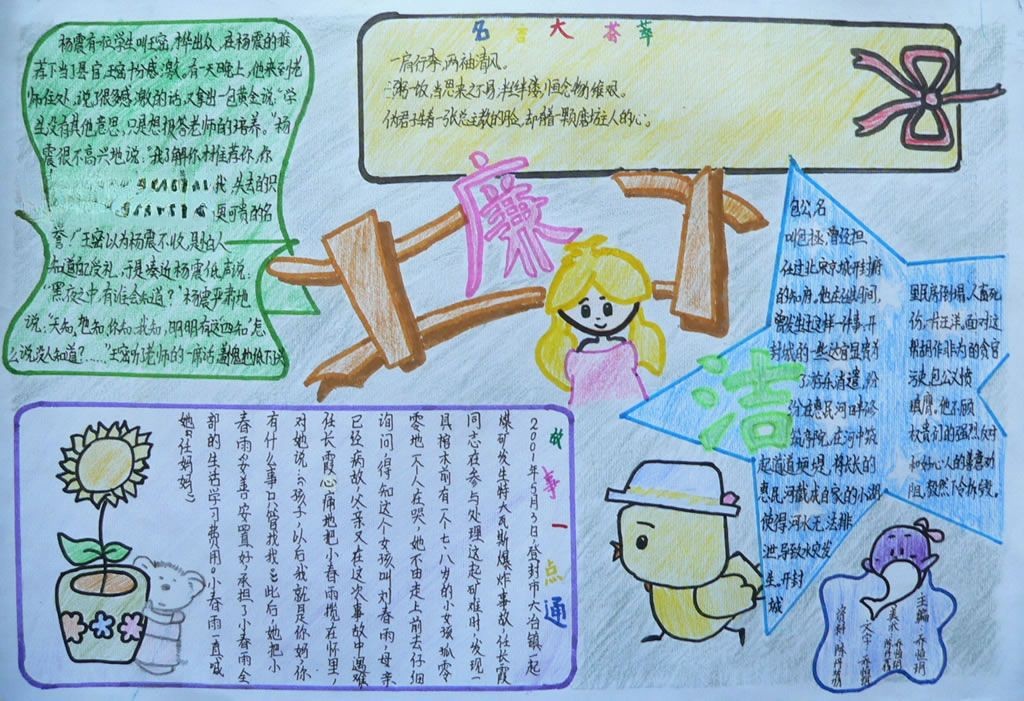 杨震有位学生叫王密,才华出众,在杨震的推
荐下当了县官,王密十分感激,有一天晚上,他来到老
师住处,说了很多感激的话,又拿出一包黄金说:“学
生没有其他意思,只是想报答老师的培养。”杨
震很不高兴地说:“我了解你才推荐你,你
我,失去的只
更可贵的名
誉!”王密以为杨震不收,是怕人
知道而受礼,于是凑近杨震低声说:
“黑夜之中有谁会知道?”杨震严肃地
说:“天知,地知,你知,我知,明明有这四知,怎
么说没人知道?……”王密听了老师的一席话,羞愧地
名言大荟萃
一肩行李,两袖清风。
一粥一饭,当思来之不易,半丝半缕,恒念物力维艰。
伪君子长着一张
廉
洁
包公,名
叫包拯,曾经担
任过北宋京城开封府
的知府。他在任期间,
曾发生过这样一件事,开
封城的一些达官显贵为
了游乐消遣,纷
纷在惠民河口
筑亭院,在河中筑
起道道梗堤,将长长的
惠民河截成自家的小湖
使得河水无法排
泄,导致水突发
生,开封
城
里民房倒塌,人畜死
伤,一片汪洋。面对这
帮胡作非为的贪官
污吏,包公义愤
填膺。他不顾
权贵们的强烈反对
和好心人的善意劝
阻,毅然下令拆毁。
故事一点通
2001年5月2日,登封市大冶镇一起
煤矿发生特大瓦斯爆炸事故,任长霞
同志在参与处理这起矿难时,发现一
具棺木前有一个七、八岁的小女孩孤零
零地一个人在哭,她不由走上前去仔细
询问,得知这个女孩叫刘春雨,母亲
已经病故,父亲又在这次事故中遇难
任长霞心痛地把小春雨揽在怀里,
对她说:“孩子,以后我就是你妈,你
有什么事只管找我。”此后,她把小
春雨妥善安置好,承担了小春雨全
部的生活学习费用。小春雨一直喊
她“任妈妈”
主编:乔恒玥
美术:乔恒玥
文字:乔恒玥
资料:陈丹霞